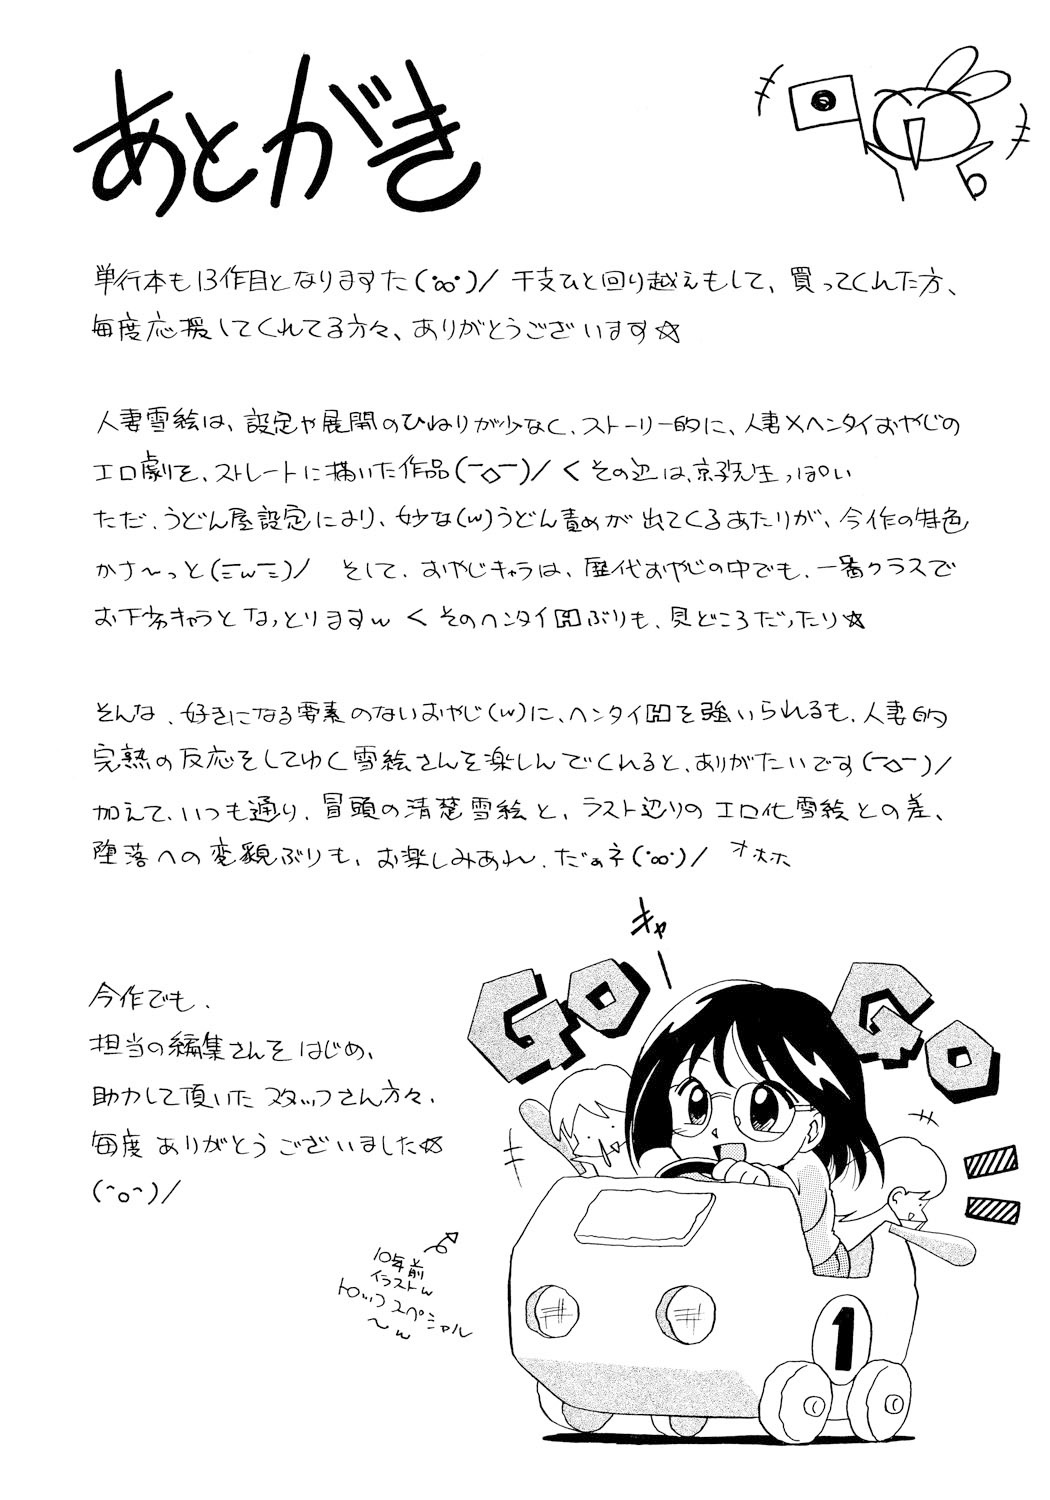 あとがき
単行本も13作目となりますた(･ω･)/ 干支ひと回り越えもして、買ってくれた方、
毎度応援してくれてる方々、ありがとうございます☆
人妻雪絵は、設定や展開のひねりが少なく、ストーリー的に、人妻×ヘンタイおやじの
エロ劇を、ストレートに描いた作品(￣◇￣)/ くその辺は、京子先生っぽい
ただ、うどん屋設定により、妙な(w)うどん責めが出てくるあたりが、今作の特色
かさ〜っと(ΞwΞ)/ そして、おやじキャラは、歴代おやじの中でも、一番クラスで
お下劣キャラとなっとりますw くそのヘンタイHぶりも、見どころだったり☆
そんな、好きになる要素のないおやじ(w)に、ヘンタイHを強いられるも、人妻的
完熟の反応をしてゆく雪絵さんを楽しんでくれると、ありがたいです(￣◇￣)/
加えて、いつも通り、冒頭の清楚雪絵と、ラスト辺りのエロ化雪絵との差、
堕落への変貌ぶりも、お楽しみあれ、だぁネ(･ω･)/ オホホ
キャー
GO GO
今作でも、
担当の編集さんをはじめ、
助力して頂いたスタッフさん方々、
毎度ありがとうございました☆
(^o^)/
10年前
イラストw
トップスペシャル
〜w
1